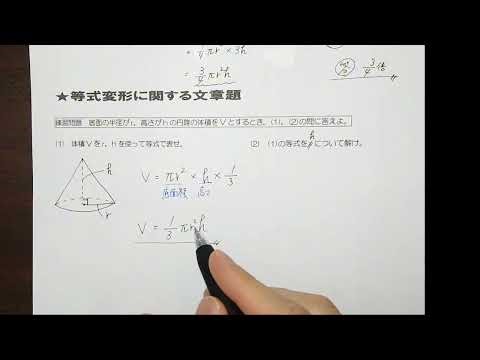 πr² × 3h
= 3/4 πr²h
3/4 倍
★等式変形に関する文章題
練習問題 底面の半径がr、高さがhの円錐の体積をVとするとき、(1)、(2)の問に答えよ。
(1) 体積Vをr、hを使って等式で表せ。
(2) (1)の等式をhについて解け。
h
r
V = πr² × h × 1/3
底面積 高さ
V = 1/3 πr²h